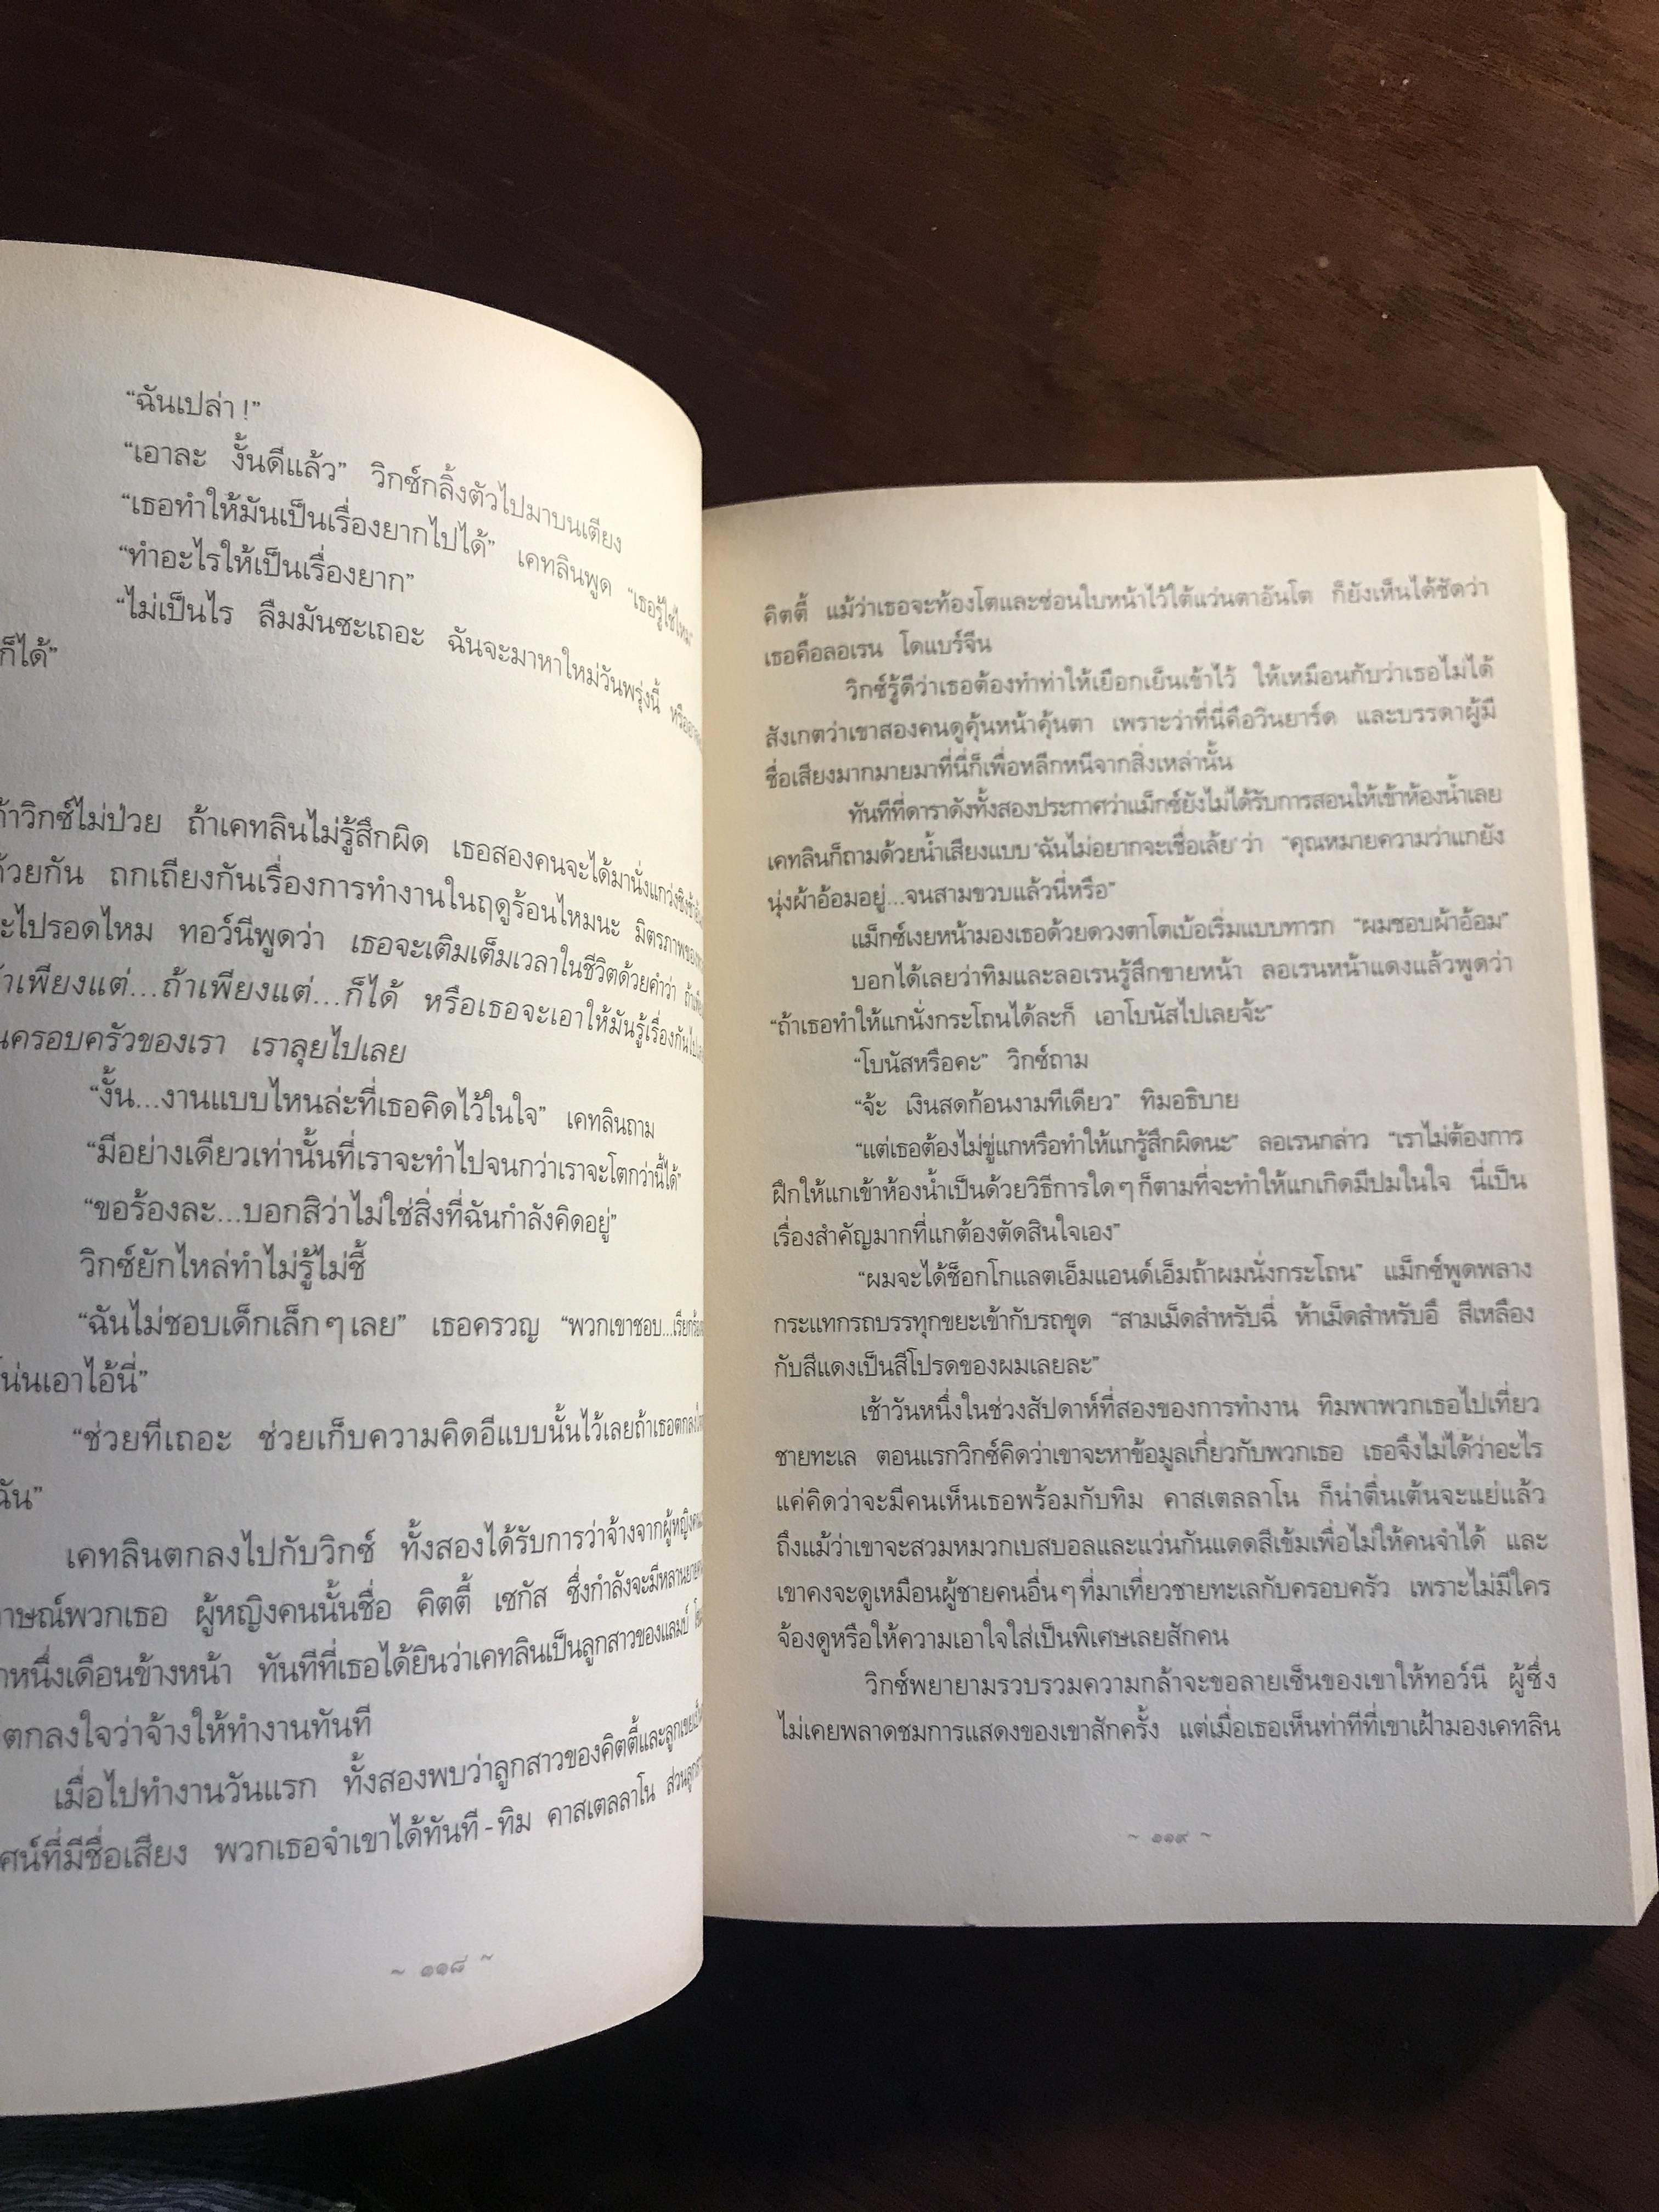 “ฉันเปล่า !”
“เอาละ งั้นดีแล้ว” วิกซ์กลิ้งตัวไปมาบนเตียง
“เธอทำให้มันเป็นเรื่องยากไปได้” เคทลินพูด “เธอรู้ใช่ไหม”
“ทำอะไรให้เป็นเรื่องยาก”
“ไม่เป็นไร ลืมมันซะเถอะ ฉันจะมาหาใหม่วันพรุ่งนี้
ก็ได้”
วิกซ์ไม่ป่วย ถ้าเคทลินไม่รู้สึกผิด เธอสองคนจะได้มานั่งแกว่งชิงช้า
ด้วยกัน ถกเถียงกันเรื่องการทำงานในฤดูร้อนไหมนะ
ไปรอดไหม ทอว์นีพูดว่า เธอจะเติมเต็มเวลาในชีวิตด้วยคำว่า
เพียงแต่...ถ้าเพียงแต่...ก็ได้ หรือเธอจะเอาให้มันรู้เรื่องกันไป
ครอบครัวของเรา เราลุยไปเลย
“งั้น...งานแบบไหนล่ะที่เธอคิดไว้ในใจ” เคทลินถาม
“มีอย่างเดียวเท่านั้นที่เราจะทำไปจนกว่าเราจะโตกว่านี้ได้”
“ขอร้องละ...บอกสิว่าไม่ใช่สิ่งที่ฉันกำลังคิดอยู่”
วิกซ์ยักไหล่ทำไม่รู้ไม่ชี้
“ฉันไม่ชอบเด็กเล็ก ๆ เลย” เธอครวญ “พวกเขาชอบ...
เอาไอ้นี่”
“ช่วยทีเถอะ ช่วยเก็บความคิดอีแบบนั้นไว้เลยถ้าเธอตกลง
ฉัน”
เคทลินตกลงไปกับวิกซ์ ทั้งสองได้รับการว่าจ้างจากผู้หญิง
พวกเธอ ผู้หญิงคนนั้นชื่อ คิตตี้ เซกัส ซึ่งกำลังจะมีหลาน
หนึ่งเดือนข้างหน้า ทันทีที่เธอได้ยินว่าเคทลินเป็นลูกสาวของแลมบ์
ตกลงใจว่าจ้างให้ทำงานทันที
เมื่อไปทำงานวันแรก ทั้งสองพบว่าลูกสาวของคิตตี้และลูกเขย
ที่มีชื่อเสียง พวกเธอจำเขาได้ทันที - ทิม คาสเตลลาโน
~ ๑๑๘ ~
คิตตี้ แม้ว่าเธอจะท้องโตและซ่อนใบหน้าไว้ใต้แว่นตาอันโต ก็ยังเห็นได้ชัดว่า
เธอคือลอเรน โดแบร์จีน
วิกซ์รู้ดีว่าเธอต้องทำท่าให้เยือกเย็นเข้าไว้ ให้เหมือนกับว่าเธอไม่ได้
สังเกตว่าเขาสองคนดูคุ้นหน้าคุ้นตา เพราะว่าที่นี่คือวินยาร์ด และบรรดาผู้มี
ชื่อเสียงมากมายมาที่นี่ก็เพื่อหลีกหนีจากสิ่งเหล่านั้น
ทันทีที่ดาราดังทั้งสองประกาศว่าแม็กซ์ยังไม่ได้รับการสอนให้เข้าห้องน้ำเลย
เคทลินก็ถามด้วยน้ำเสียงแบบ ‘ฉันไม่อยากจะเชื่อเล้ย’ ว่า “คุณหมายความว่าแกยัง
นุ่งผ้าอ้อมอยู่...จนสามขวบแล้วนี่หรือ”
แม็กซ์เงยหน้ามองเธอด้วยดวงตาโตเบ้อเริ่มแบบทารก “ผมชอบผ้าอ้อม”
บอกได้เลยว่าทิมและลอเรนรู้สึกขายหน้า ลอเรนหน้าแดงแล้วพูดว่า
“ถ้าเธอทำให้แกนั่งกระโถนได้ละก็ เอาโบนัสไปเลยจ้ะ”
“โบนัสหรือคะ” วิกซ์ถาม
“จ้ะ เงินสดก้อนงามทีเดียว” ทิมอธิบาย
“แต่เธอต้องไม่ขู่แกหรือทำให้แกรู้สึกผิดนะ” ลอเรนกล่าว “เราไม่ต้องการ
ฝึกให้แกเข้าห้องน้ำเป็นด้วยวิธีการใด ๆ ก็ตามที่จะทำให้แกเกิดมีปมในใจ นี่เป็น
เรื่องสำคัญมากที่แกต้องตัดสินใจเอง”
“ผมจะได้ช็อกโกแลตเอ็มแอนด์เอ็มถ้าผมนั่งกระโถน” แม็กซ์พูดพลาง
กระแทกรถบรรทุกขยะเข้ากับรถขุด “สามเม็ดสำหรับฉี่ ห้าเม็ดสำหรับอึ สีเหลือง
กับสีแดงเป็นสีโปรดของผมเลยละ”
เช้าวันหนึ่งในช่วงสัปดาห์ที่สองของการทำงาน ทิมพาพวกเธอไปเที่ยว
ชายทะเล ตอนแรกวิกซ์คิดว่าเขาจะหาข้อมูลเกี่ยวกับพวกเธอ เธอจึงไม่ได้ว่าอะไร
แค่คิดว่าจะมีคนเห็นเธอพร้อมกับทิม คาสเตลลาโน ก็น่าตื่นเต้นจะแย่แล้ว
ถึงแม้ว่าเขาจะสวมหมวกเบสบอลและแว่นกันแดดสีเข้มเพื่อไม่ให้คนจำได้ และ
เขาคงจะดูเหมือนผู้ชายคนอื่น ๆ ที่มาเที่ยวชายทะเลกับครอบครัว เพราะไม่มีใคร
จ้องดูหรือให้ความเอาใจใส่เป็นพิเศษเลยสักคน
วิกซ์พยายามรวบรวมความกล้าจะขอลายเซ็นของเขาให้ทอว์นี ผู้ซึ่ง
ไม่เคยพลาดชมการแสดงของเขาสักครั้ง แต่เมื่อเธอเห็นท่าทีที่เขาเฝ้ามองเคทลิน
~ ๑๑๙ ~